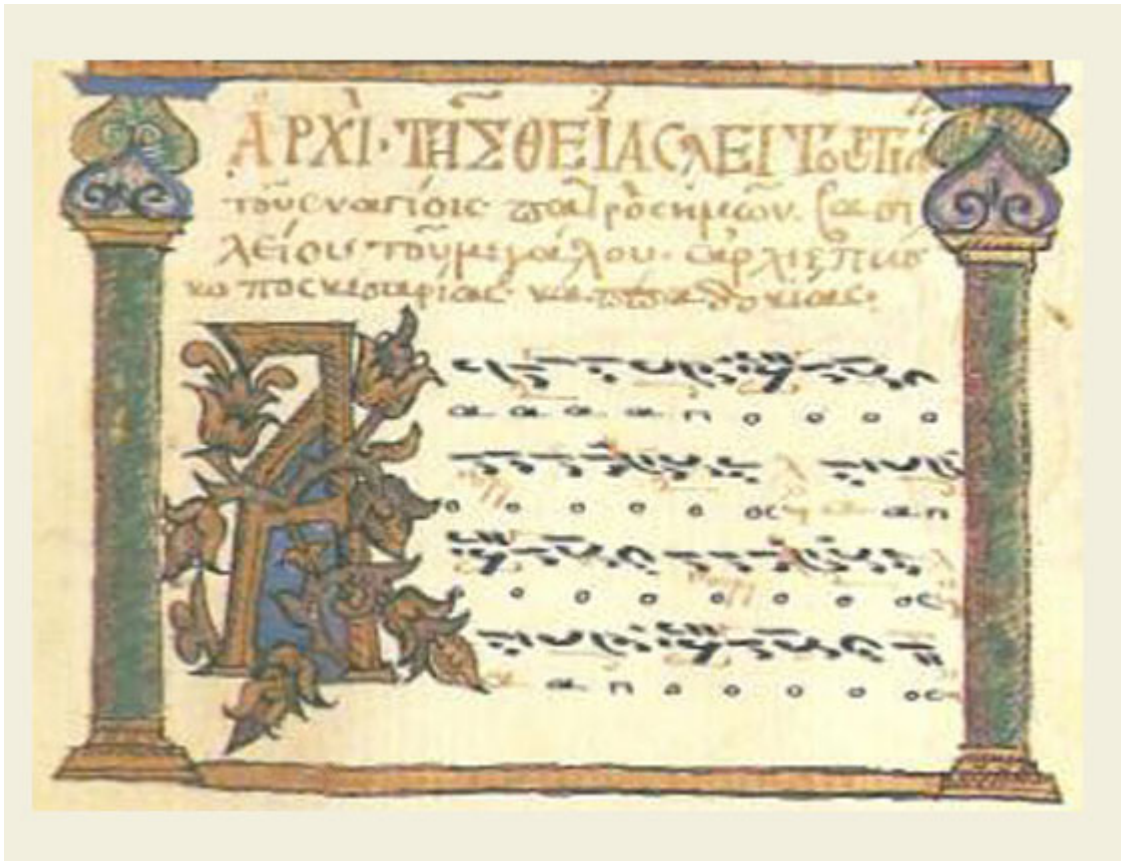 ΑΡΧΙ· ΤΗ͂Σ ΘΕΊΑC ΛΕΙΤουργία
τοῦ ἐν ἁγίοις πατρὸς ἡμῶν. βασι
λείου τοῦ μεγάλου. ἀρχιεπισ
κωπου κεσαρίας· καππαδοκίας·
Α
α α α α π ο ο ο ο
ο ο ο ο ο ος α π
ο ο ο ο ο ο ο ος
α π ο ο ο ο ος